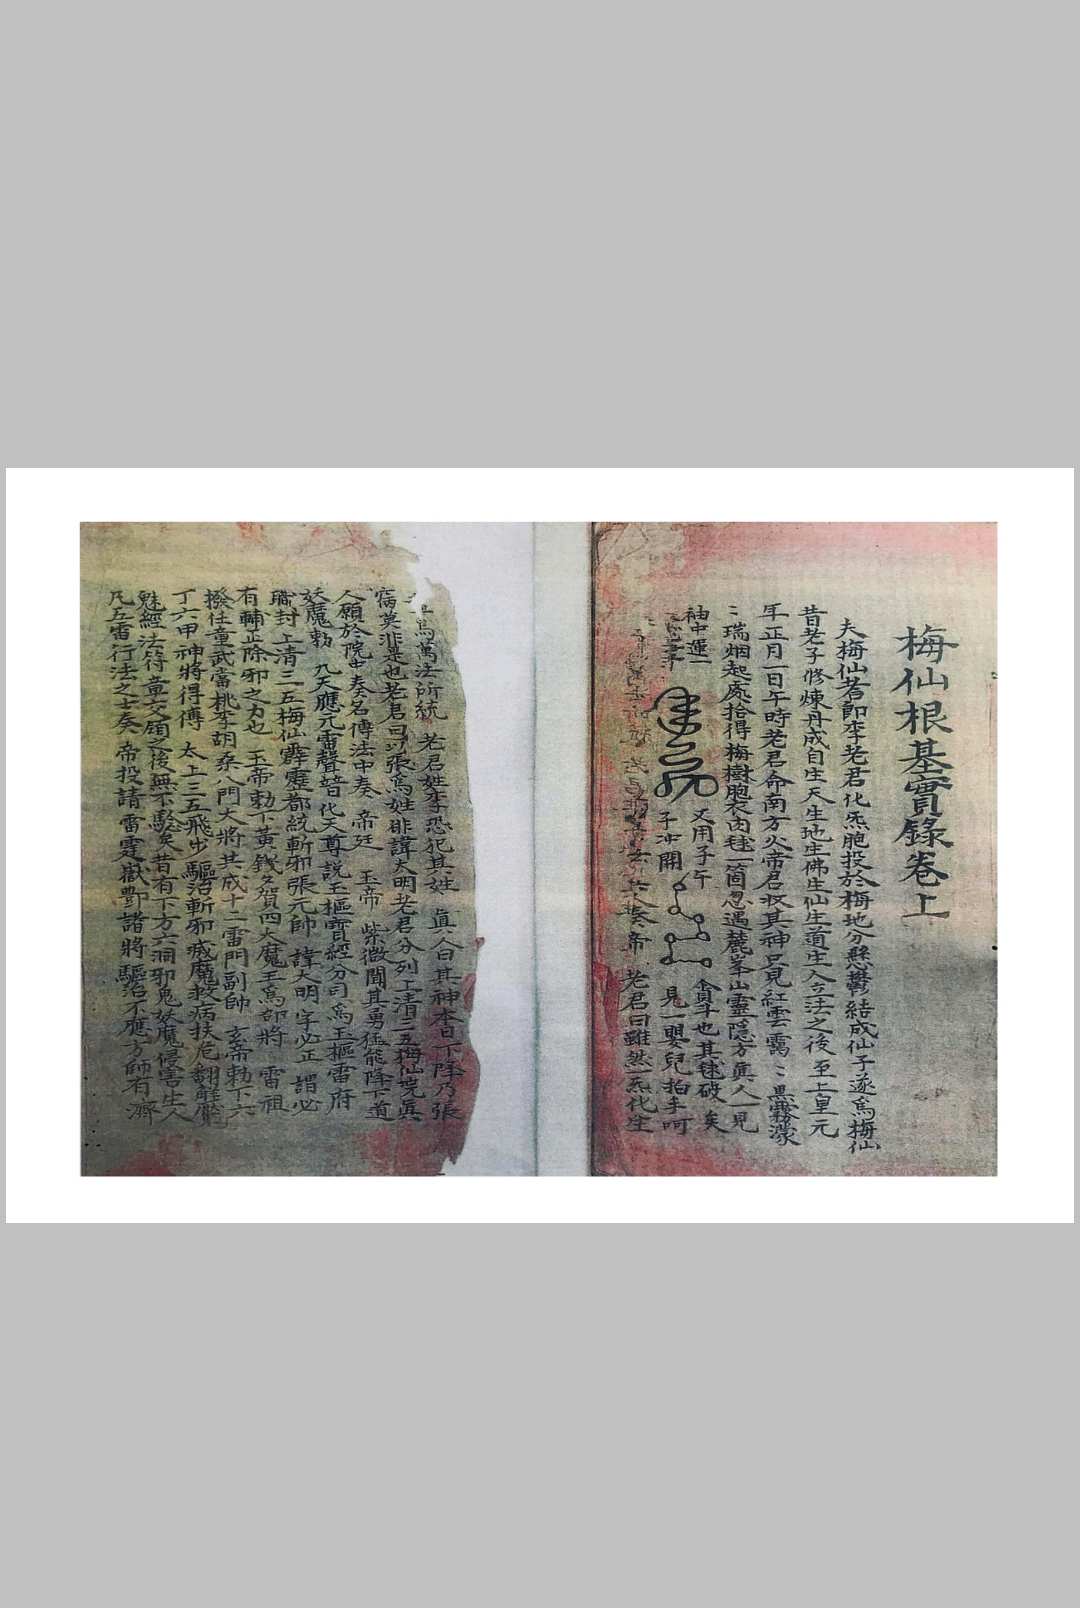 梅仙根基實錄卷上
夫梅仙者即李老君化炁胞投於梅地分懸鬱結成仙子遂爲梅仙
昔老子修煉丹成自生天生地生佛生仙生道生人立法之後至上皇元
年正月一日午時老君命南方火帝君收其神只見紅雲靄〻黑霧濛
〻瑞烟起處拾得梅樹胞衣肉毬一箇忽遇麓峯山靈隱方眞人一見
袖中運一
又用子午
貪斗也其毬破矣
子冲開
見一嬰兒拍手呵
老君曰雖然炁化生
爲萬法所統 老君姓李恐犯其姓 眞人曰其神本日下降乃張
窩英非是也老君曰以張爲姓非諱大明老君分列上清三五梅仙完眞
人願於院中奏名傳法中奏 帝廷 玉帝 紫微聞其勇猛能降下道
妖魔勅 九天應元雷聲普化天尊説玉樞寳經分司爲玉樞雷府
職封上清三五梅仙霹靂都統斬邪張元帥 諱大明字必正 謂必
有輔正除邪之力也 玉帝勅下黃錢劉賀四大魔王爲部將 雷祖
撥任童武當桃李胡奈八門大將共成十二雷門副帥 玄帝勅下六
丁六甲神將得傳 太上三五飛步驅治斬邪 滅魔救病扶危翻解
魅經法符章交領之後無不驗矣昔有下方六洞邪鬼妖魔侵害生人
凡五雷行法之士奏 帝投請雷霆嶽酆諸將驅治不應方師有